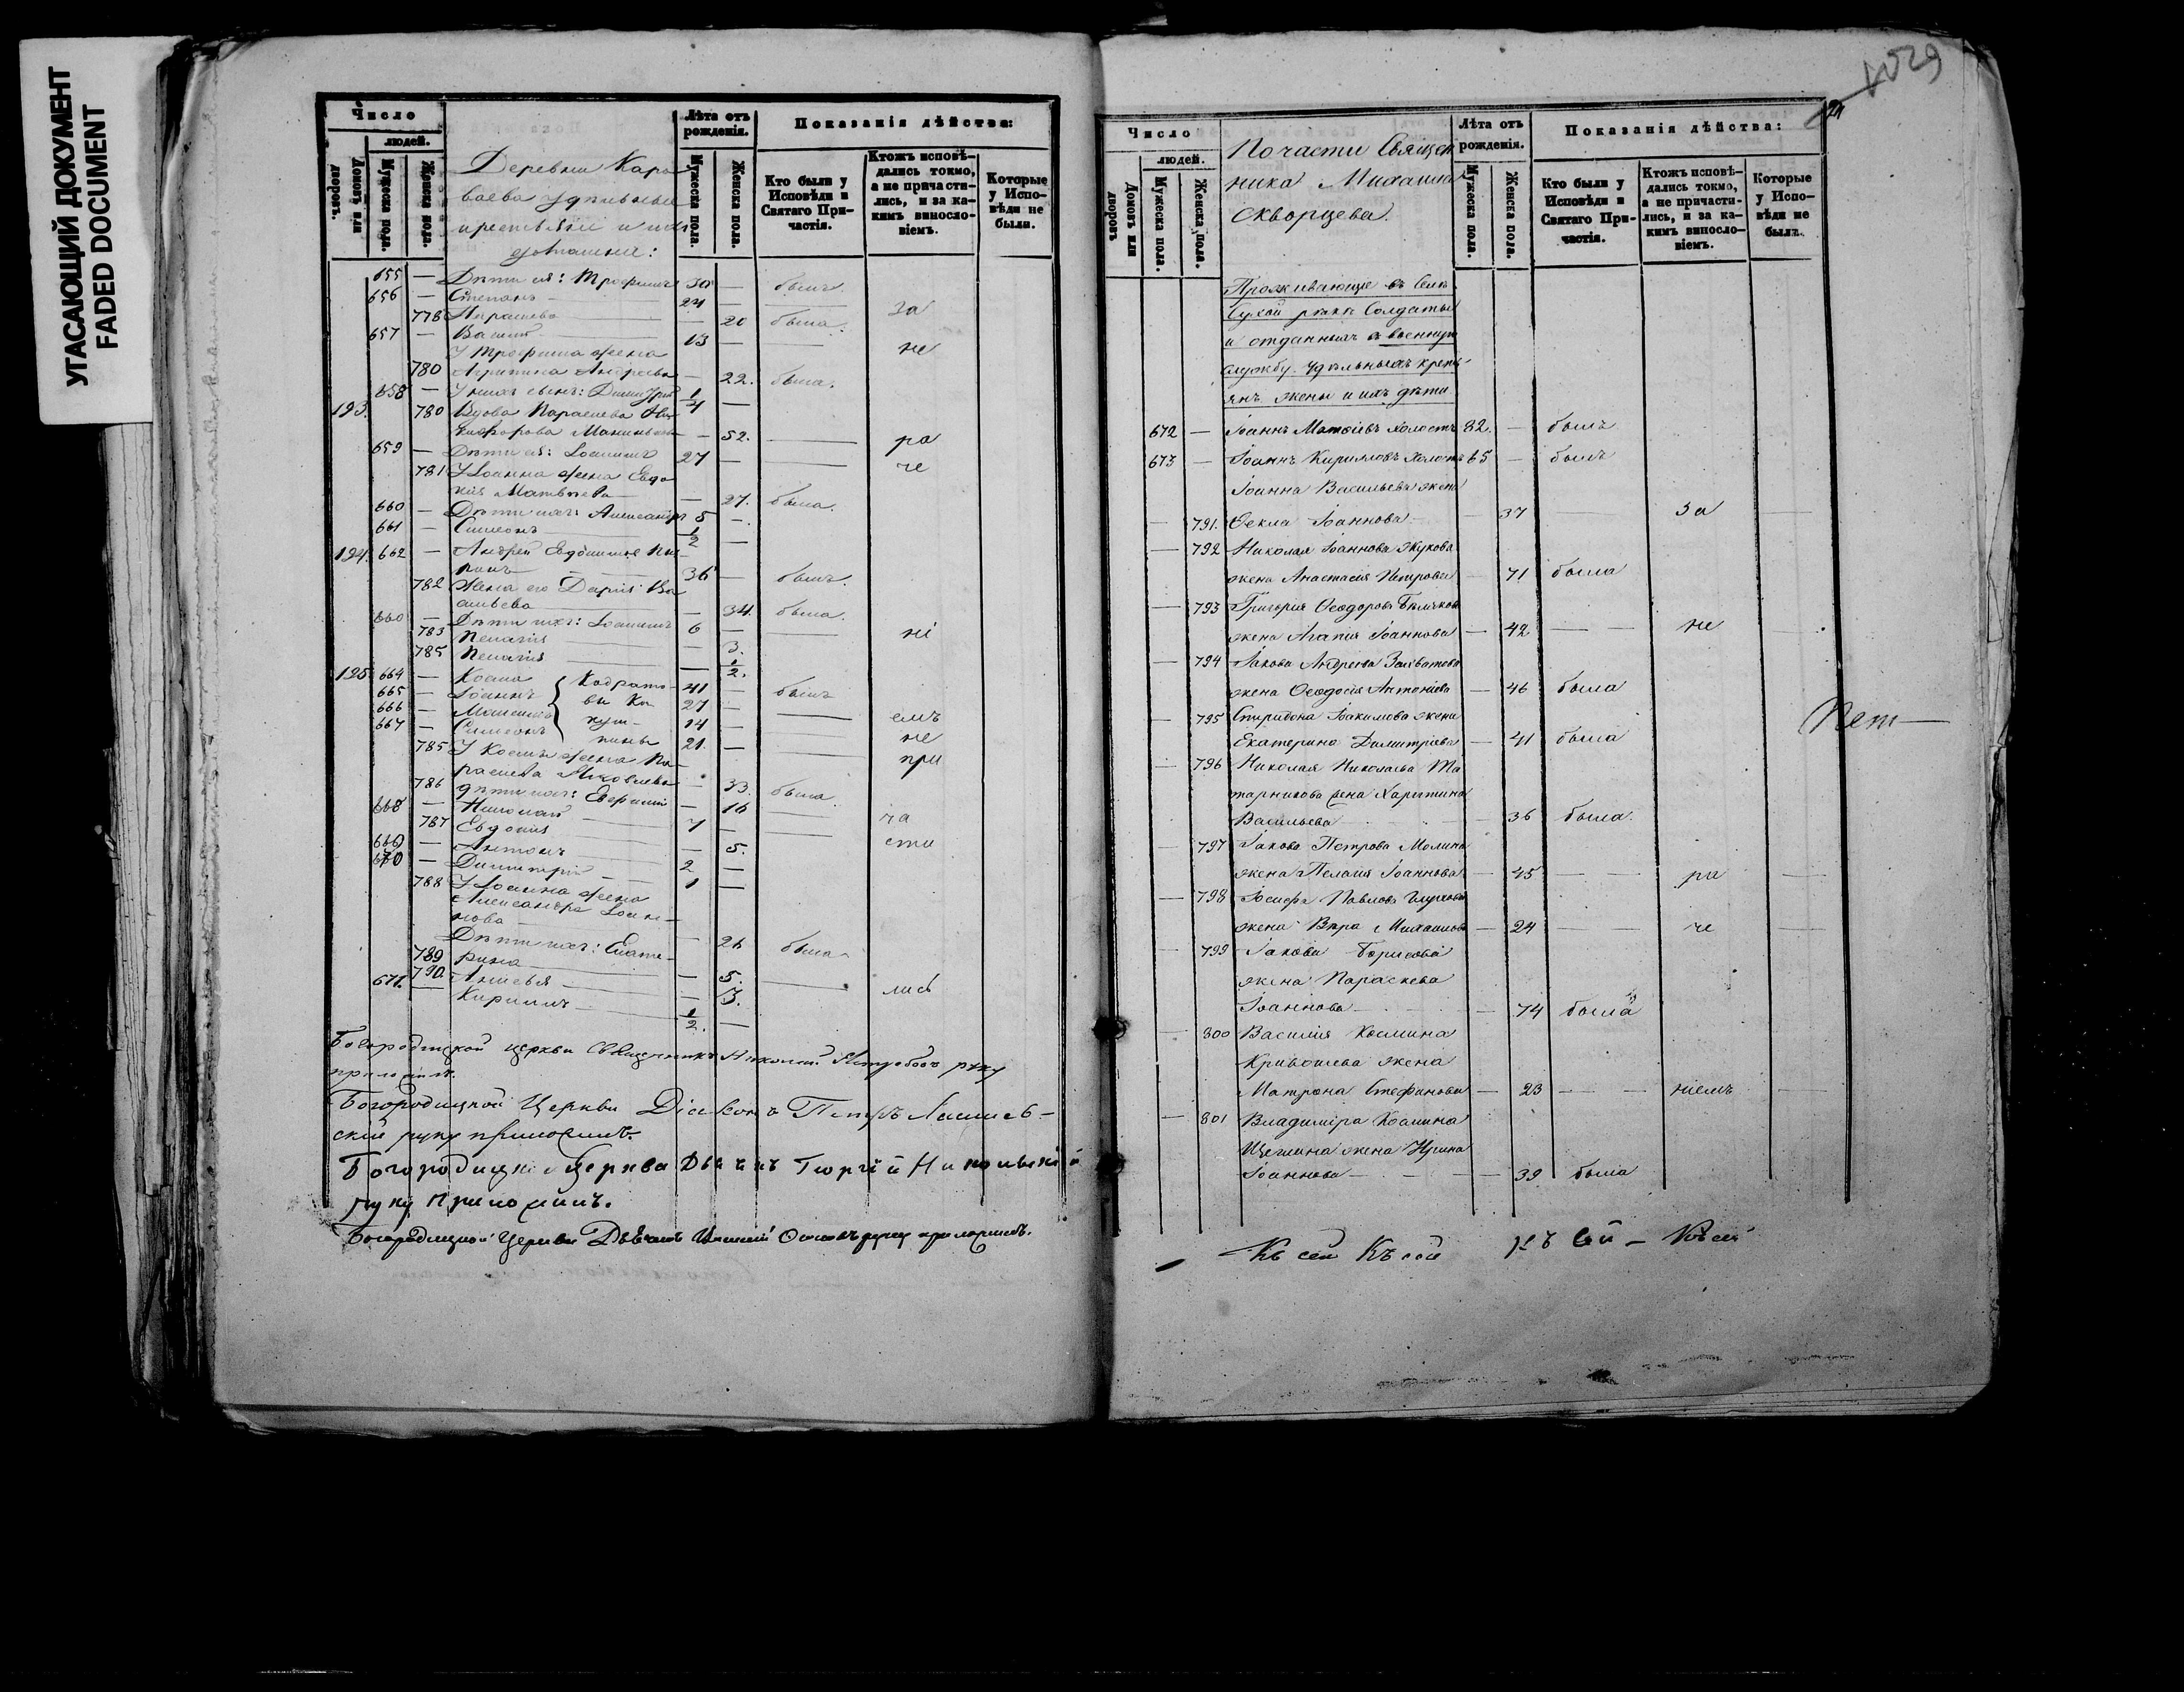 УГАСАЮЩИЙ ДОКУМЕНТ
FADED DOCUMENT
Число
людей.
Домовъ или дворовъ.
Мужеска пола.
Женска пола.
Деревни Кара
баева удѣльные
крестьяне и ихъ
домашніе:
Лѣта отъ рожденія.
Мужеска пола.
Женска пола.
Показанія дѣйства:
Кто были у Исповѣди и Святаго Причастія.
Ктожъ исповѣдались токмо, а не причастились, и за какимъ винословіемъ.
Которые у Исповѣди не были.
655 — Дѣти ея: Трофимъ 30 — былъ
656 — Степанъ — 24 — за
778 Параскева — 20 была.
657 — Василій 13 — — не
У Трофима жена
780 Агрипина Андреева — 22. была.
658 — У нихъ сынъ: Димитрій 1/4 —
193. 780 Вдова Параскева Ни
кифорова — 52. — ра
659 — Дѣти ея: Іоаннъ 27 — че
781 У Іоанна жена Евдо
кія Матвѣева — 27. была.
660 — Дѣти ихъ: Александръ 5 —
661 — Симеонъ 1/2 —
194. 662 — Андрей Евдокимов
36 — былъ.
782 Жена его Дарія Ва
сильева — 34. была.
660 — Дѣти ихъ: Іоаннъ 6 — ні
783 Пелагія — 3.
785 Пелагія — 1/2.
195 664 — Косма 41 — былъ
665 — Іоаннъ 27 — емъ
666 — 14 — не
667 — Симеонъ 21. — при
785 У Космы жена Па
раскева Яковлева — 33. была.
786 дѣти ихъ: — 16 ча
668 — Николай 7 — сти
787 Евдокія — 5.
669 — Антонъ 2 —
670 — Димитрій 1 —
788 У Іоанна жена
Александра Іоан
нова — 26 была
Дѣти ихъ: Екате
789 рина — 5. — лись
790. — 3.
671. — Кириллъ 1/2. —
Богородицкой церкви Священникъ руку
приложилъ.
Богородицкой Церкви Діаконъ Петръ
скій руку приложилъ.
Богородицкой Церкви Дьячекъ Георгій Никольскій
руку приложилъ.
Богородицкой Церкви руку приложилъ.
1029
Число
людей.
Домовъ или дворовъ
Мужеска пола.
Женска пола.
По части Священ
ника Михаила
Скворцева.
Лѣта отъ рожденія.
Мужеска пола.
Женска пола.
Показанія дѣйства:
Кто были у Исповѣди и Святаго Причастія.
Ктожъ исповѣдались токмо, а не причастились, и за какимъ винословіемъ.
Которые у Исповѣди не были.
Проживающіе въ Селѣ
Сухой рѣчки Солдаты
и отданныхъ въ военную
службу удѣльныхъ кресть
янъ жены и ихъ дѣти
672 — Іоаннъ Матвіевъ холостъ 82. — былъ
673 — Іоаннъ Кирилловъ холостъ 65 — былъ
Іоанна Васильева жена
— 791. Ѳекла Іоаннова — 37 — за —
— 792 Николая Іоаннова Жукова
жена Анастасія Петрова — 71 была
— 793 Григорія Ѳеодорова Бѣлякова
жена Агапія Іоаннова — 42 — — не
— 794 Іакова Андреева
жена Ѳеодосія Антоніева — 46 была
— 795 Спиридона Іоакимова жена
Екатерина Димитріева — 41 была
— 796 Николая Николаева Та
тарникова жена Харитина
Васильева — 36 была.
— 797 Іакова Петрова Молина
жена Пелагія Іоаннова — 45 — — ра —
— 798 Іосифа Павлова
жена Вѣра Михаилова — 24 — — че —
— 799 Іакова Борисова
жена Параскева
Іоаннова — 74 была
— 800 Василія Космина
Кривошева жена
Матрона Стефанова — 23 — — ніемъ —
— 801 Владиміра Космина
жена Ирина
Іоаннова — 39 была
Къ сей Къ сей Къ сей — Къ сей